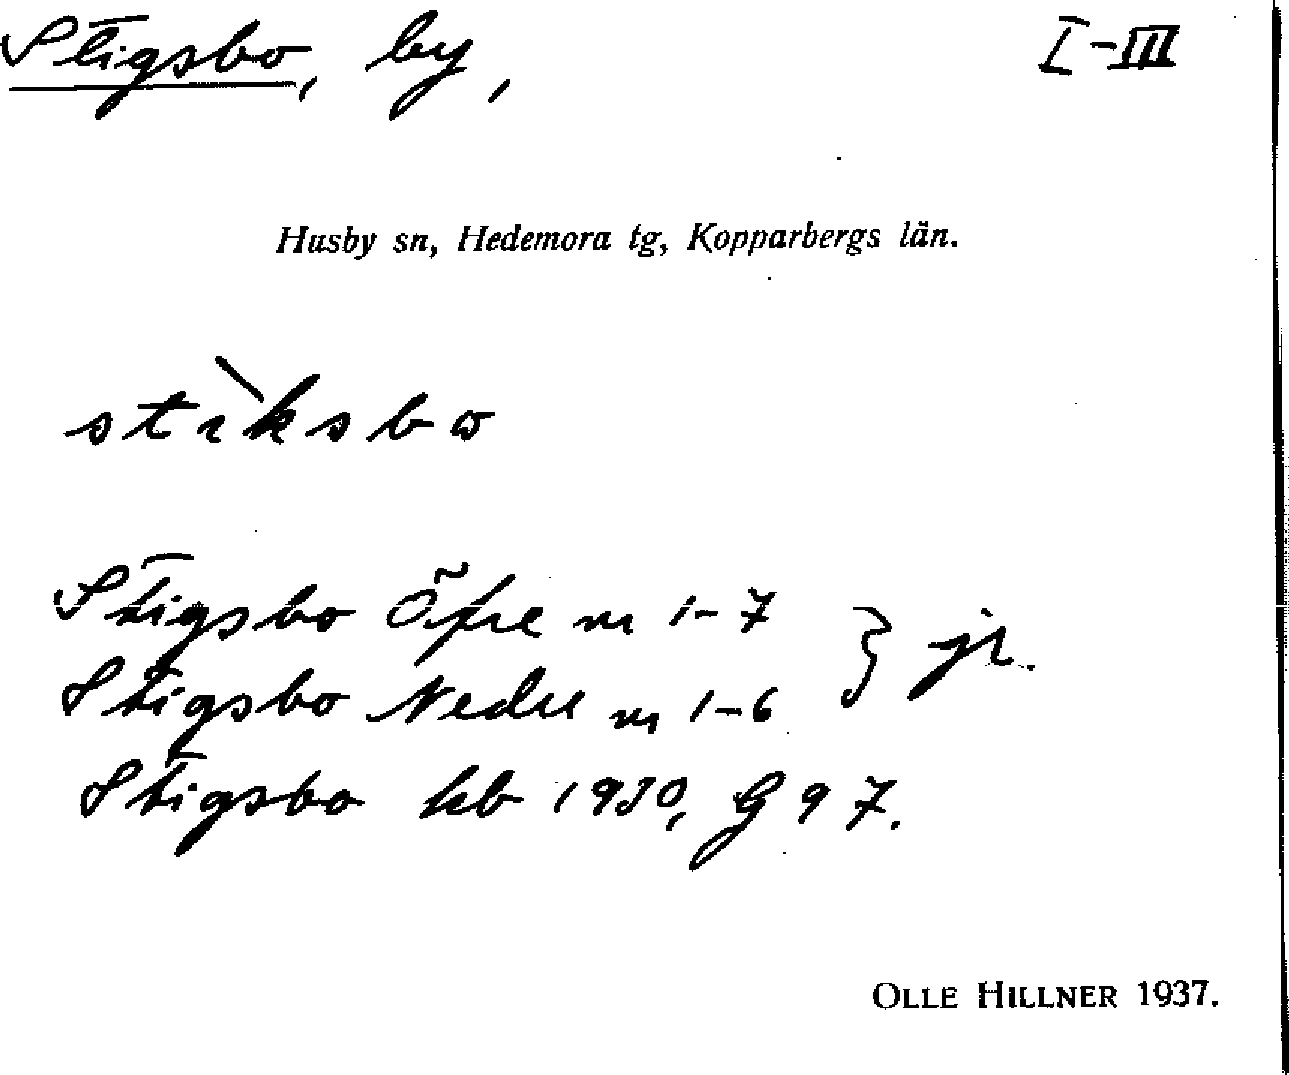 Stigsbo, by, I-III
Husby sn, Hedemora tg, Kopparbergs län.
stìksbo
Stigsbo Öfre nr 1-7 } jr.
Stigsbo Nedre nr 1-6
Stigsbo kb 1930, G 97.
OLLE HILLNER 1937.